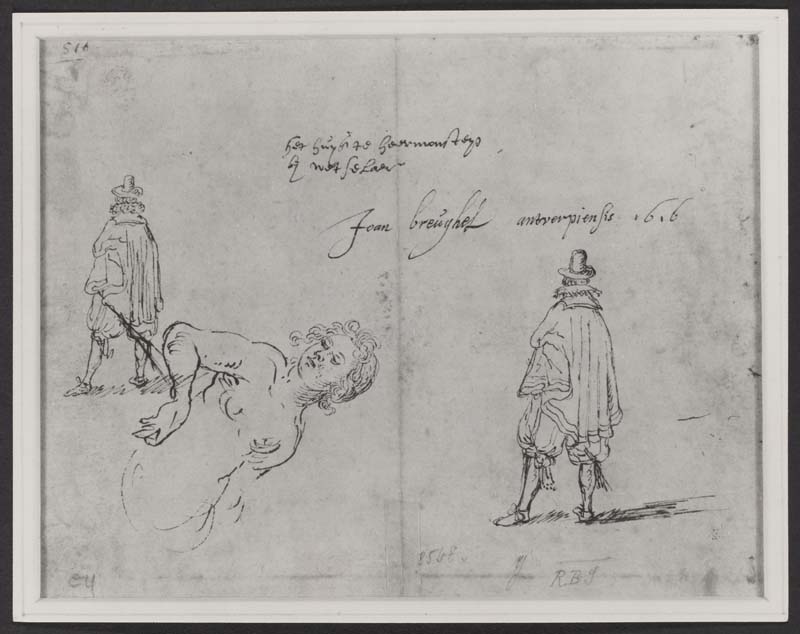 516
het huys te heermonsteyo
bij wetselaer
Joan breughel antverpiensis 1616
8568
RBJ